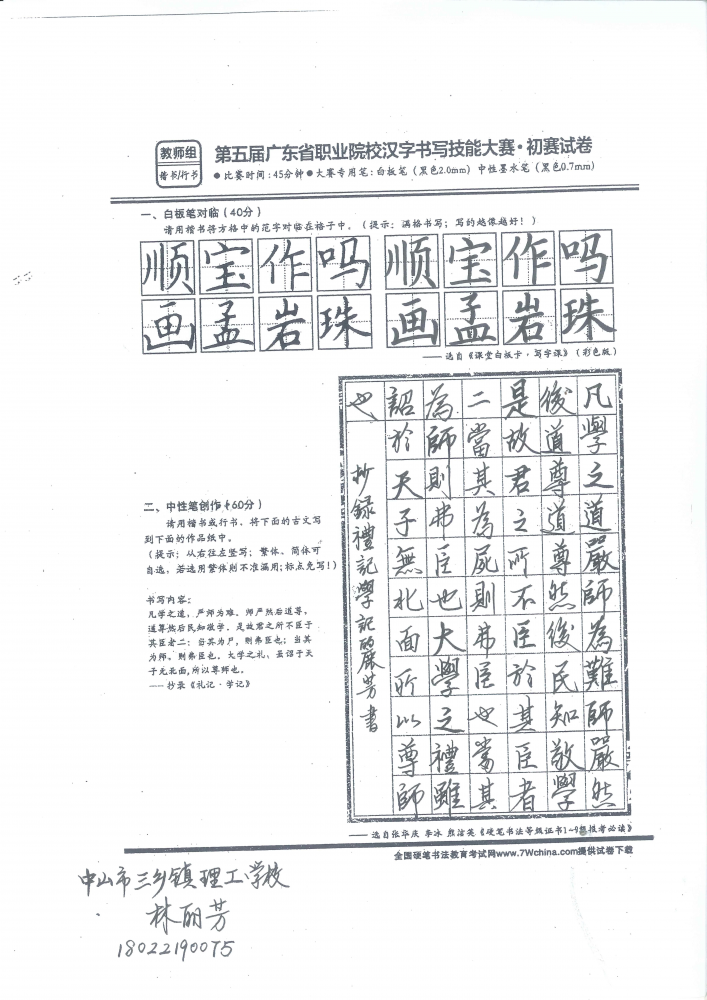 教师组
楷书/行书
第五届广东省职业院校汉字书写技能大赛·初赛试卷
●比赛时间:45分钟●大赛专用笔:白板笔(黑色2.0mm) 中性墨水笔(黑色0.7mm)
一、白板笔对临(40分)
请用楷书将方格中的范字对临在格子中。(提示:满格书写;写的越像越好!)
顺宝作吗 顺宝作吗
画孟岩珠 画孟岩珠
——选自《课堂白板卡·写字课》(彩色版)
二、中性笔创作(60分)
请用楷书或行书,将下面的古文写
到下面的作品纸中。
(提示:从右往左竖写;繁体、简体可
自选,若选用繁体则不准漏用;标点免写!)
书写内容:
凡学之道,严师为难。师严然后道尊,
道尊然后民知敬学。是故君之所不臣于
其臣者二:当其为尸,则弗臣也;当其
为师,则弗臣也。大学之礼,虽诏于天
子无北面,所以尊师也。
——抄录《礼记·学记》
凡學之道嚴師為難師嚴然
後道尊道尊然後民知敬學
是故君之所不臣於其臣者
二當其為尸則弗臣也當其
為師則弗臣也大學之禮雖
詔於天子無北面所以尊師
也
抄錄禮記學記 丽芳書
——选自张华庆 李冰 熊洁英《硬笔书法等级证书1~9级报考必读》
全国硬笔书法教育考试网www.7Wchina.com提供试卷下载
中山市三乡镇理工学校
林丽芳
18022190075